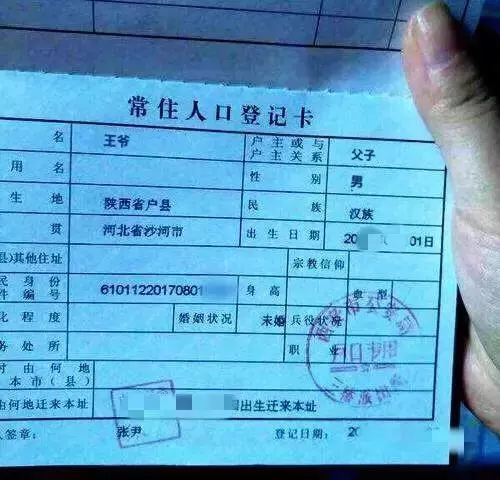 常住人口登记卡
名 王爷 户主或与户主关系 父子
用名 性别 男
生地 陕西省户县 民族 汉族
贯 河北省沙河市 出生日期 20 01日
县)其他住址 宗教信仰
民身份件编号 61011220170801 身高 血型
化程度 婚姻状况 未婚 兵役状况
务处所 职业
时由何地本市(县)
由何地迁来本址 出生迁来本址
人签章: 张尹 登记日期: 20
户口专用